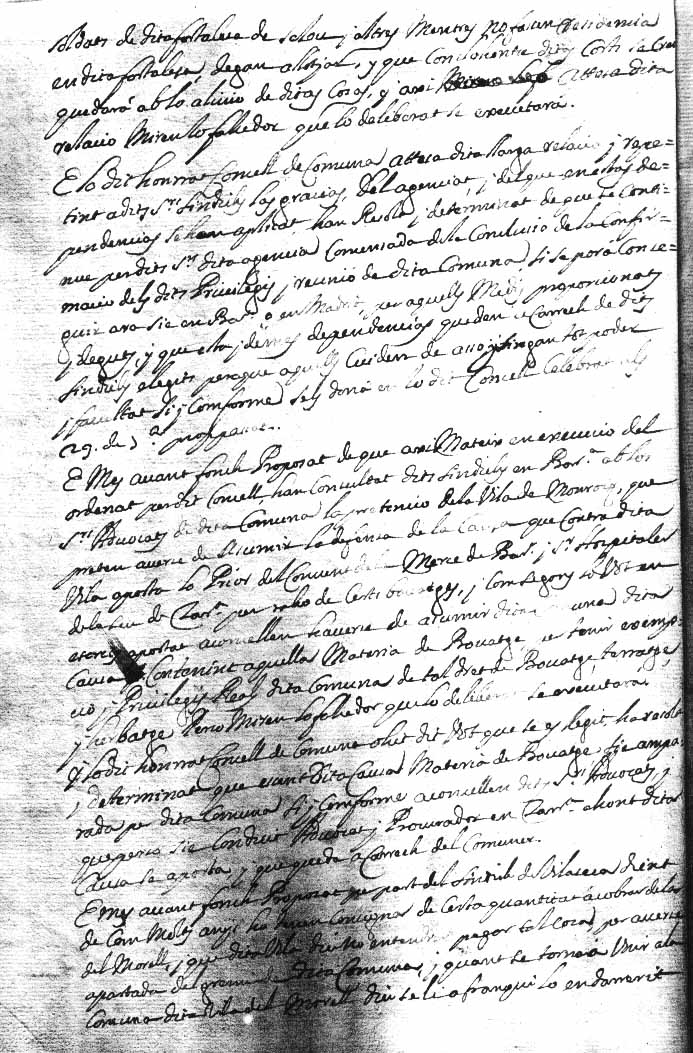 soldats de dita fortaleza de Salou, j altres Mentres no fassen Residencia
en dita fortaleza, degan allotjar, y que Concloentse dits Corts se Creu
quedará ab lo alivio de ditas Cosas, y axi attesa dita
relacio Miren lo fahedor que lo deliberat se executará.
E lo dit honrat Consell de Comuna attesa dita llarga relacio, j repe=
tint a dits Srs. Sindichs las gracias, del agenciat, j del que en estas de=
pendencias se han aplicat, han Resolt, j determinat de que se Conti=
nue per dits Srs. dita agencia Comensada de la Conclusio de la Confir=
macio dels dits Privilegis, j reunió de dita Comuna, si se porá Conse=
guir ara sie en Barna. o en Madrit, per aquells Medis proporcionats
j deguts, j que esta, j demes dependencias queden a Carrech de dits
Sindichs elegits perque aquells Cuiden de asso, y tingan tot poder
j facultat Si, j Conforme se ls doná en lo dit Consell Celebrat als
29. de proppassat.
E Mes avant fonch Proposat de que axi Mateix en execucio del
ordenat per dit Consell, han Consultat dits Sindichs en Barna. ab los
Srs. Advocats de dita Comuna la pretencio de la Vila de Monroig, que
preten averse de Assumir la defensa de la Causa que Contra dita
Vila aporta lo Prior del Convent de la Merce de Barna. j Sr. Hospitaler
de la Seu de Tarna. per raho de Certs bovatges, j Com segons lo Vot en
escrits aportat aconsellen haverse de assumir dita Comuna dita
Causa Contenint aquella Materia de Bovatge, se tenir exemp=
cio, j Privilegis Real dita Comuna de tal dret de Bovatge, terratge,
j herbatge Pero Miren lo fahedor que lo deliberat se executará.
Y lo dit honrat Consell de Comuna ohit dit Vot que se es legit, ha resolt
j determinat que essent Dita Causa Materia de Bovatge, sie ampa=
rada per dita Comuna Si, j Conforme aconsellen dits Srs. Advocats, j
que perco sie Conduit Advocat, j Procurador en Tarna. ahont dita
Causa se aporta, j que quede a Carrech del Comuner.
E mes avant fonch Proposat per part del Sindich de Vilaseca dient
de Com Molts anys ha tenen Consignas de Certa quantitat a cobrar de la
del Morell, j que dita Vila diu no entendre pagar tal cosa, per averse
apartada del gremi de dita Comuna, j quant se torná a Unir a la
Comuna dita Vila del Morell diu se li a franquí lo endarrerit